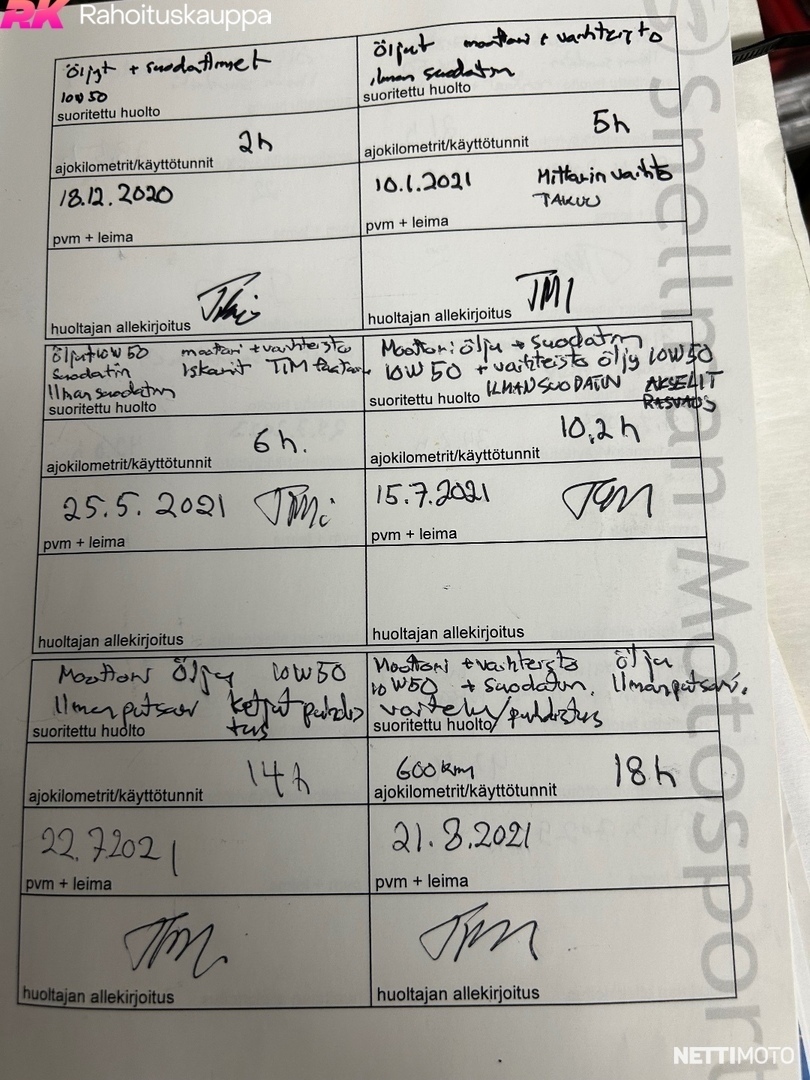 RK Rahoituskauppa
Öljyt + suodattimet
10W50
suoritettu huolto
2h
ajokilometrit/käyttötunnit
18.12.2020
pvm + leima
huoltajan allekirjoitus
Öljyt moottori + vaihteisto
ilman suodatin
suoritettu huolto
5h
ajokilometrit/käyttötunnit
10.1.2021 Mittarin vaihto
TAKUU
pvm + leima
huoltajan allekirjoitus
Öljyt 10W50 moottori + vaihteisto
suodatin Iskarit TIM
Ilmansuodatin
suoritettu huolto
6h.
ajokilometrit/käyttötunnit
25.5.2021
pvm + leima
huoltajan allekirjoitus
Moottori öljy + suodatin
10W50 + vaihteisto öljy 10W50
suoritettu huolto ILMANSUODATIN AKSELIT
RASVAUS
10,2h
ajokilometrit/käyttötunnit
15.7.2021
pvm + leima
huoltajan allekirjoitus
Moottori Öljy 10W50
Ilmanputsari ketjut puhdis
tus
suoritettu huolto
14h
ajokilometrit/käyttötunnit
22.7.2021
pvm + leima
huoltajan allekirjoitus
Moottori + vaihteisto öljy
10W50 + suodatin, Ilmanputsari,
voitelu/puhdistus
suoritettu huolto
600km 18h
ajokilometrit/käyttötunnit
21.8.2021
pvm + leima
huoltajan allekirjoitus
Snellman Motosport
NETTIMOTO